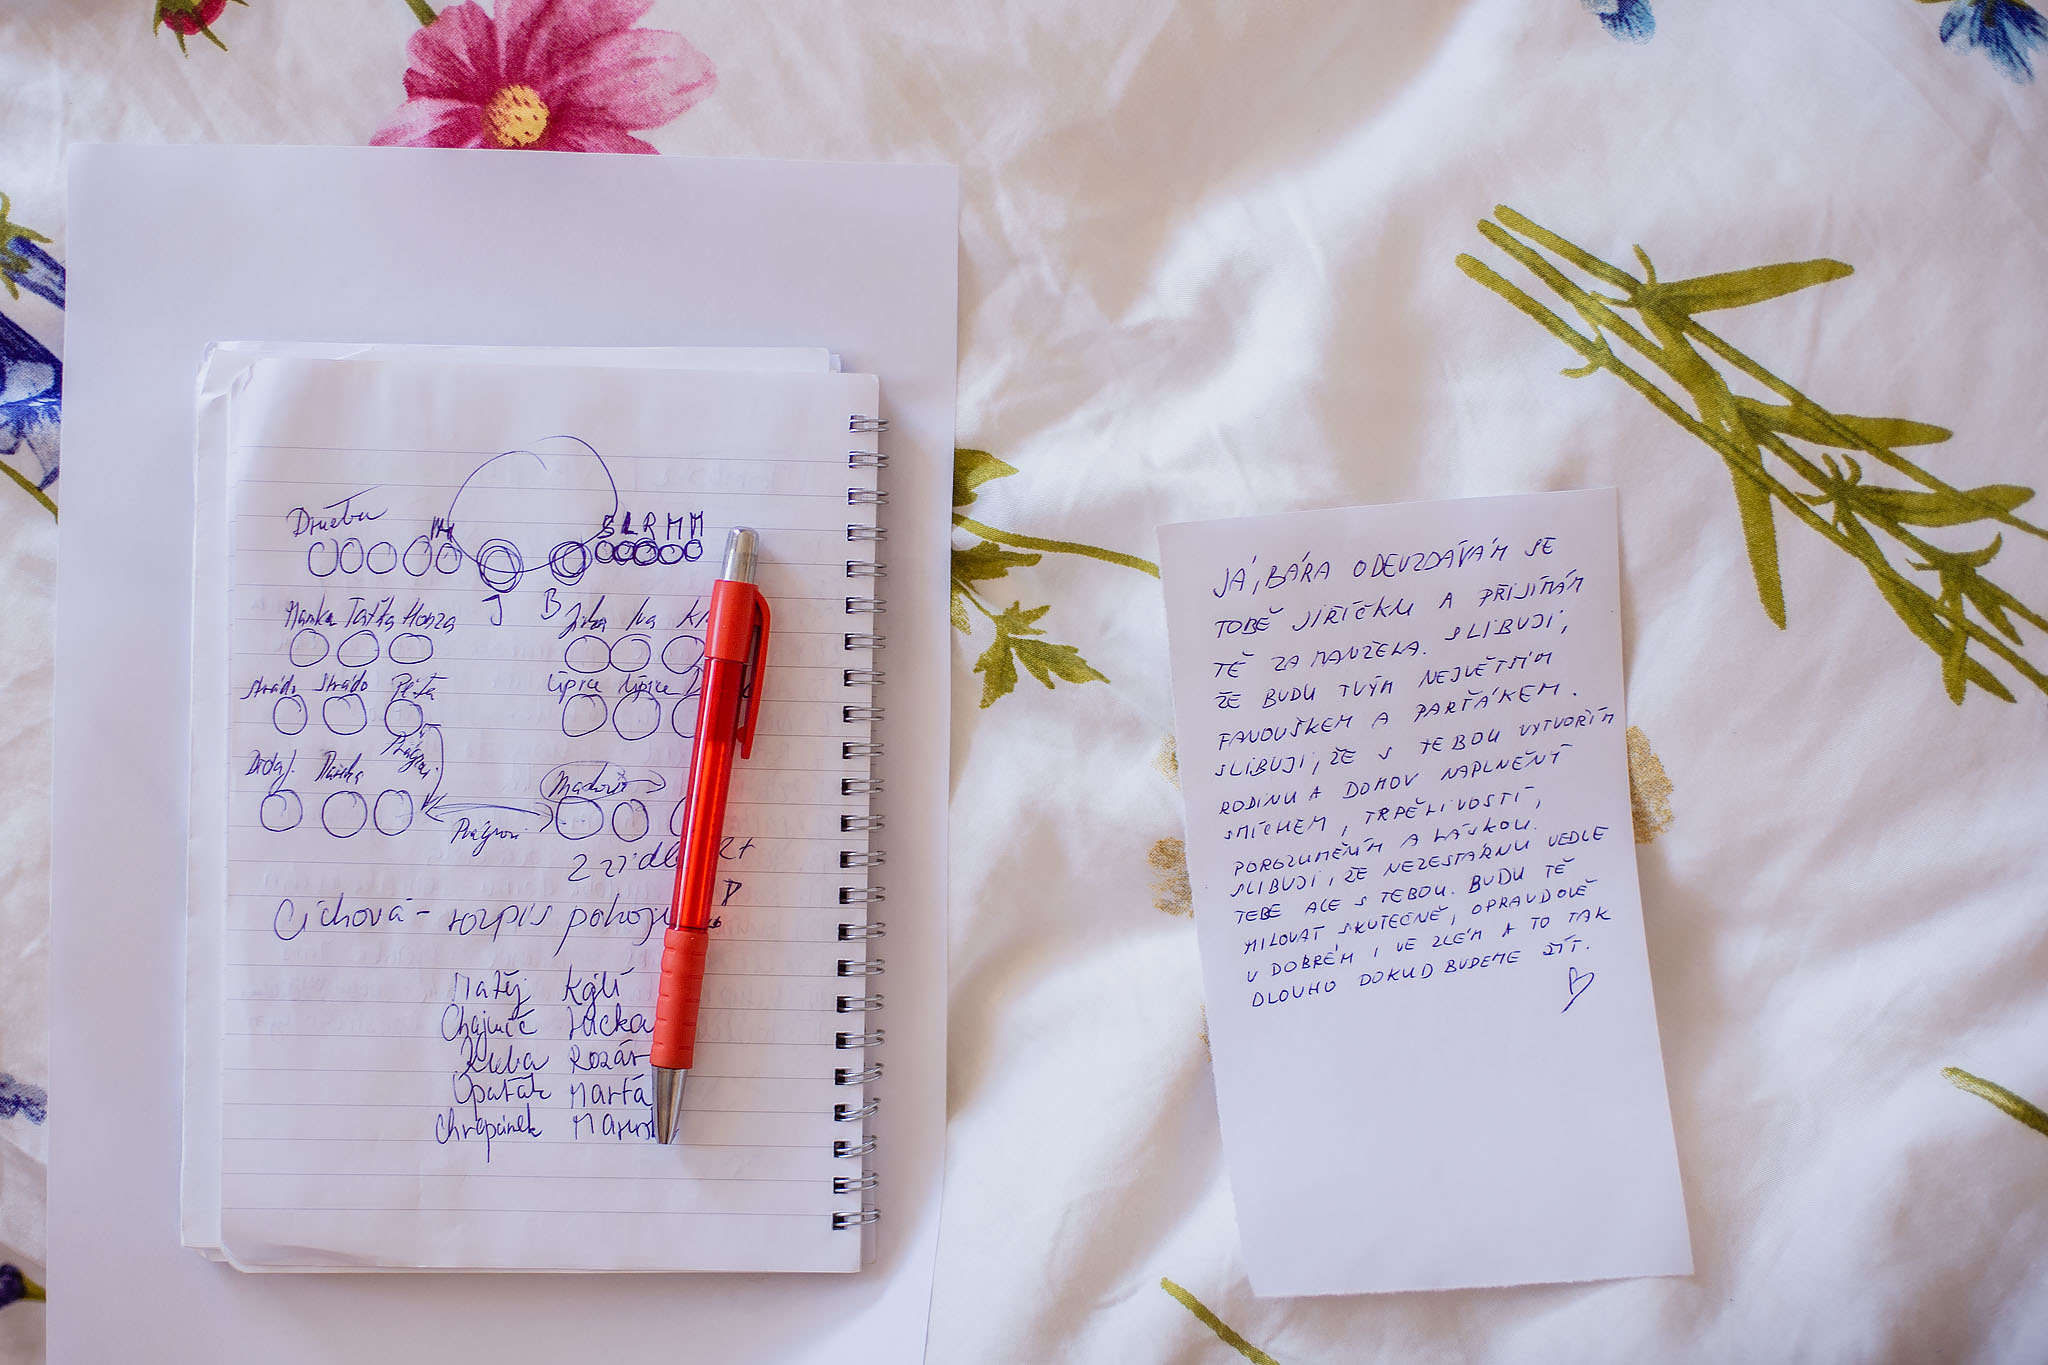 Družba M S L R M M
J B
Mamka Taťka Honza Jirka Iva
Strádo Strádo Péťa Lipice Lipice
Maruška
2 židle
Cíchová - rozpis pokojů
Matěj Kajtí
Lucka
Kuba Rozár
Opaták Marťá
Chropánek
JÁ, BÁRA ODEVZDÁVÁM SE
TOBĚ JIŘÍČKU A PŘIJÍMÁM
TĚ ZA MANŽELA. SLIBUJI,
ŽE BUDU TVÝM NEJVĚTŠÍM
FANOUŠKEM A PARŤÁKEM.
SLIBUJI, ŽE S TEBOU VYTVOŘÍM
RODINU A DOMOV NAPLNĚNÝ
SMÍCHEM, TRPĚLIVOSTÍ,
POROZUMĚNÍM A LÁSKOU.
SLIBUJI, ŽE NEZESTÁRNU VEDLE
TEBE ALE S TEBOU. BUDU TĚ
MILOVAT SKUTEČNĚ, OPRAVDOVĚ
V DOBRÉM I VE ZLÉM A TO TAK
DLOUHO DOKUD BUDEME ŽÍT.